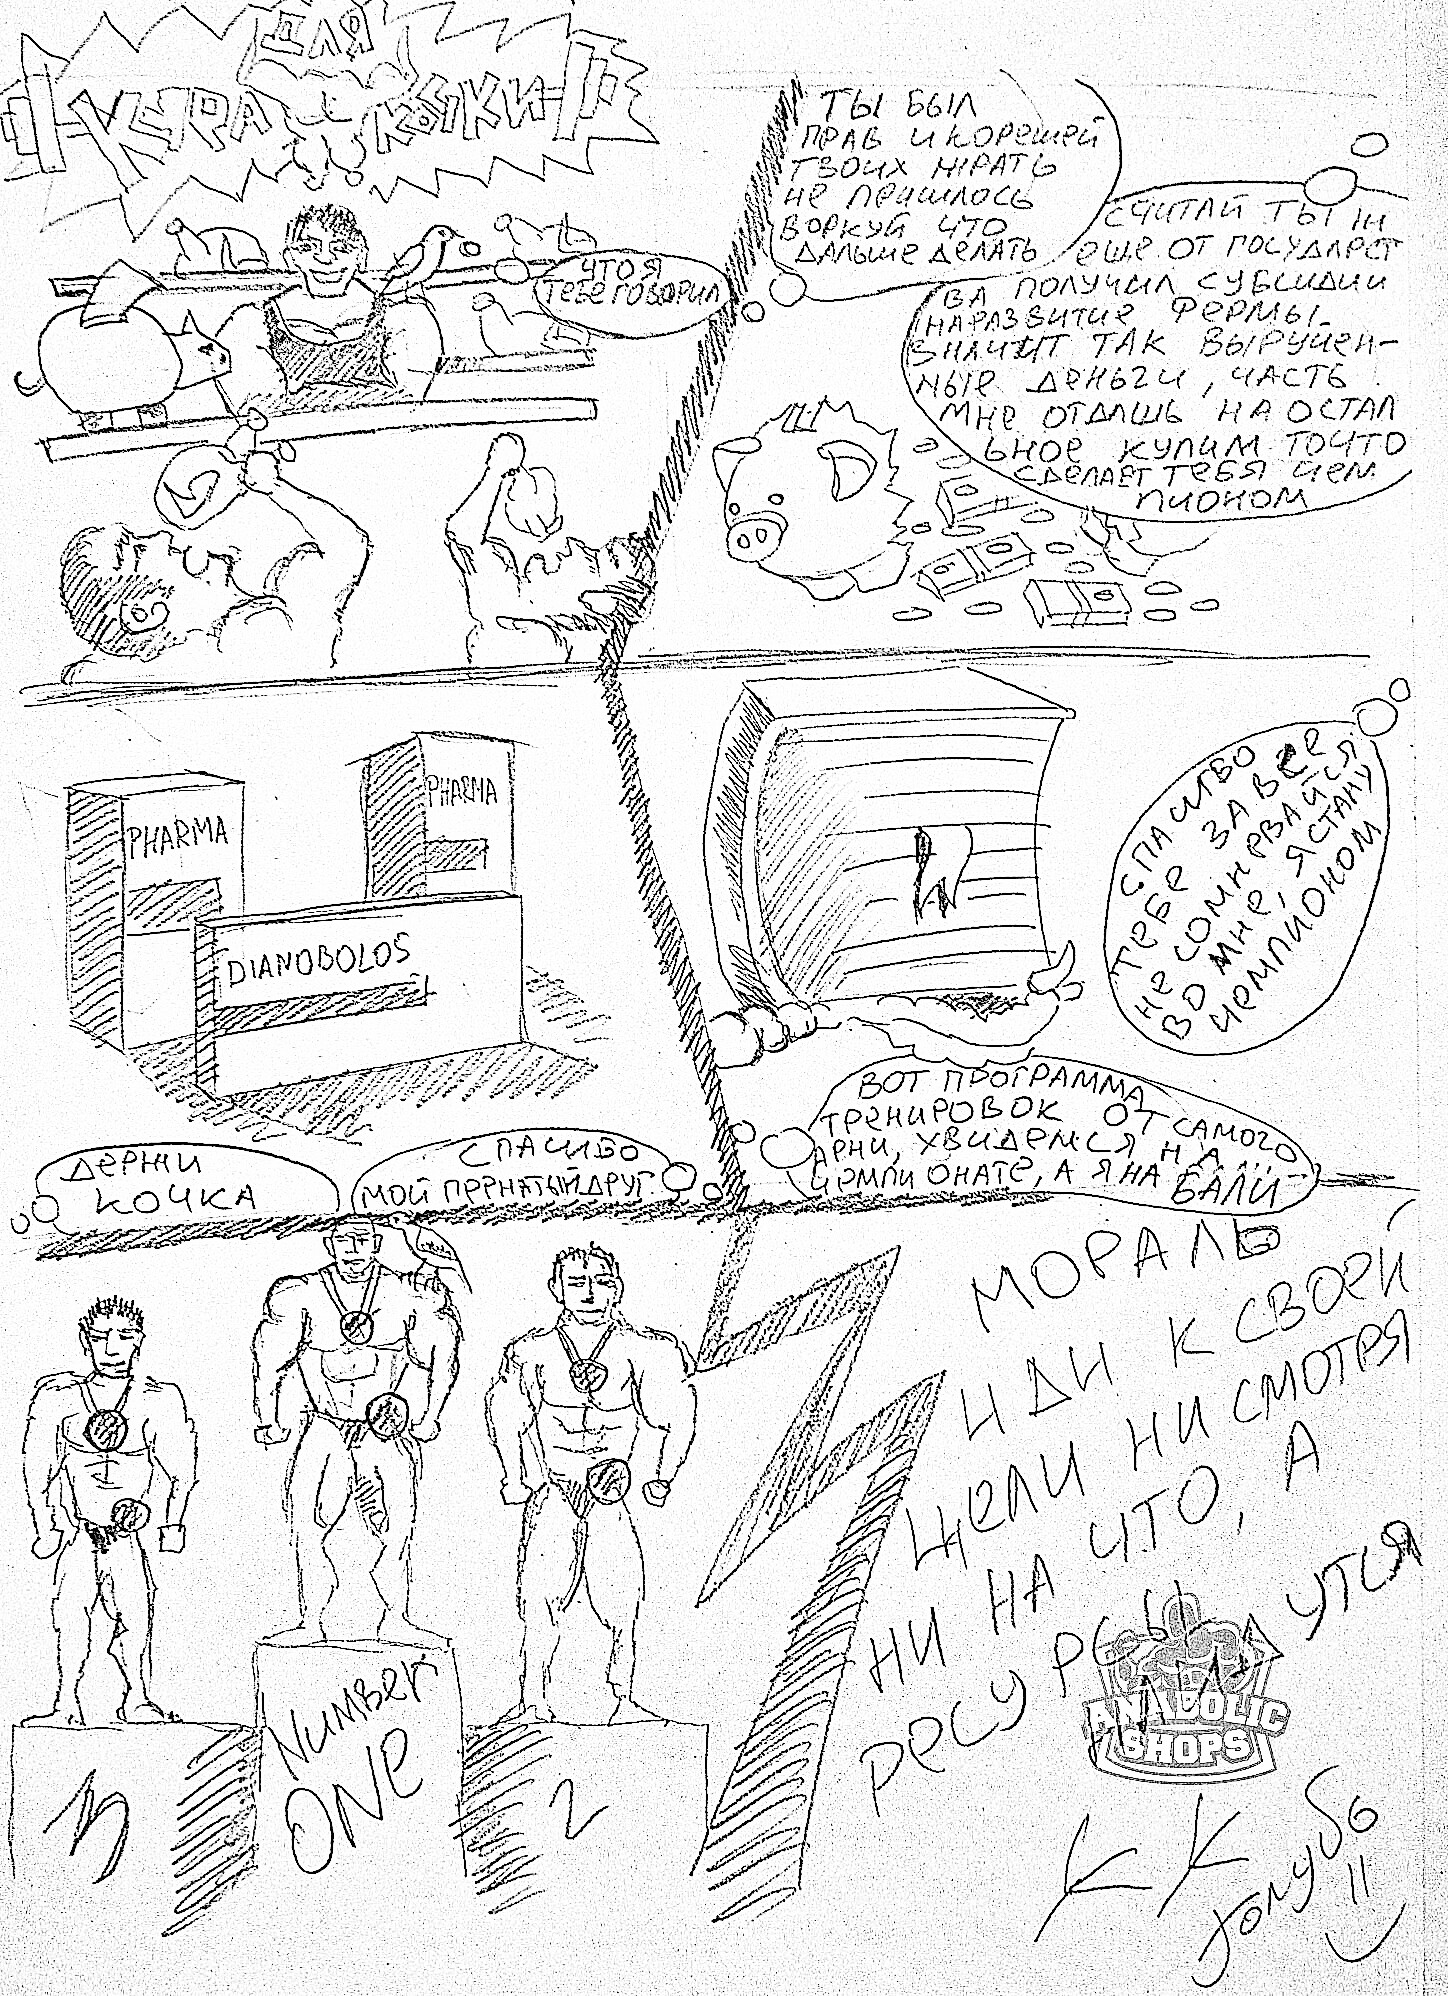 ДЛЯ
КУРА КАЧКИ
ЧТО Я
ТЕБЕ ГОВОРИЛ
ТЫ БЫЛ
ПРАВ И КОРЕШЕЙ
ТВОИХ ЖРАТЬ
НЕ ПРИШЛОСЬ
ВОРКУЙ ЧТО
ДАЛЬШЕ ДЕЛАТЬ
СЧИТАЙ ТЫ Ж
ЕЩЕ ОТ ГОСУДАРСТ
ВА ПОЛУЧИЛ СУБСИДИИ
НА РАЗВИТИЕ ФЕРМЫ
ЗНАЧИТ ТАК ВЫРУЧЕН-
НЫЕ ДЕНЬГИ, ЧАСТЬ
МНЕ ОТДАШЬ НА ОСТАЛ
ЬНОЕ КУПИМ ТО ЧТО
СДЕЛАЕТ ТЕБЯ ЧЕМ
ПИОНОМ
PHARMA
PHARMA
DIANOBOLOS
СПАСИБО
ТЕБЕ ЗА ВСЕ
НЕ СОМНЕВАЙСЯ
ВО МНЕ, Я СТАНУ
ЧЕМПИОНОМ
ВОТ ПРОГРАММА
ТРЕНИРОВОК ОТ САМОГО
АРНИ, УВИДЕМСЯ НА
ЧЕМПИОНАТЕ, А Я НА БАЛИ
ДЕРЖИ
КОЧКА
СПАСИБО
МОЙ ПЕРНАТЫЙ ДРУГ
3
NUMBER
ONE
2
МОРАЛЬ
ИДИ К СВОЕЙ
ЦЕЛИ НИ СМОТРЯ
НИ НА ЧТО, А
РЕСУРСЫ НАЙДУТСЯ
ANABOLIC
SHOPS
КК
Голубь
11